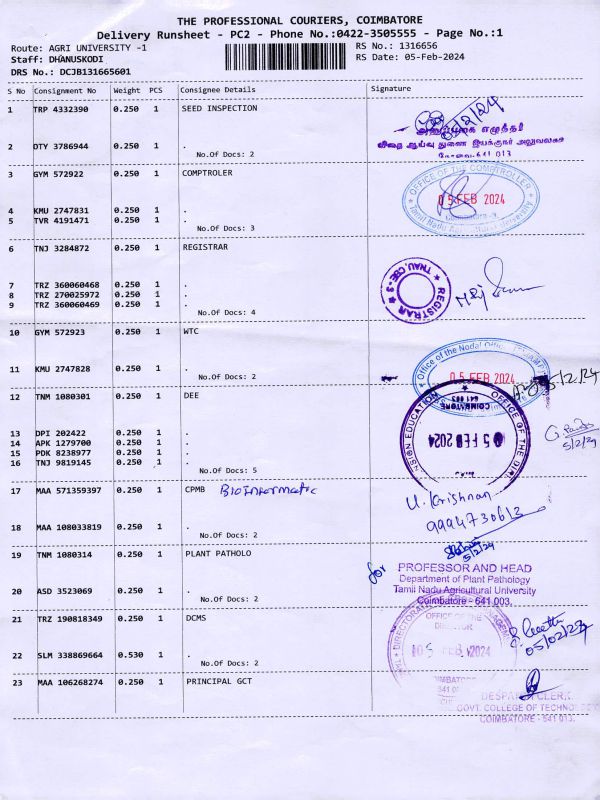 THE PROFESSIONAL COURIERS, COIMBATORE
Delivery Runsheet - PC2 - Phone No.:0422-3505555 - Page No.:1
Route: AGRI UNIVERSITY -1
RS No.: 1316656
Staff: DHANUSKODI
RS Date: 05-Feb-2024
DRS No.: DCJB131665601
S No Consignment No Weight PCS Consignee Details Signature
1 TRP 4332390 0.250 1 SEED INSPECTION
5/2/24
அலுவலக எழுத்தர்
2 DTY 3786944 0.250 1 .
விதை ஆய்வு துணை இயக்குநர் அலுவலகம்
கோவை-641 013
No.Of Docs: 2
3 GYM 572922 0.250 1 COMPTROLER
OFFICE OF THE COMPTROLLER
05 FEB 2024
Coimbatore-3
Tamil Nadu Agricultural University
4 KMU 2747831 0.250 1 .
5 TVR 4191471 0.250 1 .
No.Of Docs: 3
6 TNJ 3284872 0.250 1 REGISTRAR
REGISTRAR TNAU, CBE-3
7 TRZ 360060468 0.250 1 .
8 TRZ 270025972 0.250 1 .
9 TRZ 360060469 0.250 1 .
No.Of Docs: 4
10 GYM 572923 0.250 1 WTC
Office of the Nodal Officer
11 KMU 2747828 0.250 1 .
05 FEB 2024
5/2/24
No.Of Docs: 2
12 TNM 1080301 0.250 1 DEE
COIMBATORE
641 003
OFFICE OF THE DIRE
NSION EDUCATION
05 FEB 2024
TNAU
5/2/24
13 DPI 202422 0.250 1 .
14 APK 1279700 0.250 1 .
15 PDK 8238977 0.250 1 .
16 TNJ 9819145 0.250 1 .
No.Of Docs: 5
17 MAA 571359397 0.250 1 CPMB Bioinformatic
U. Krishnan
9994730613
18 MAA 108033819 0.250 1 .
No.Of Docs: 2
5/2/24
19 TNM 1080314 0.250 1 PLANT PATHOLO
for PROFESSOR AND HEAD
Department of Plant Pathology
Tamil Nadu Agricultural University
Coimbatore - 641 003.
20 ASD 3523069 0.250 1 .
No.Of Docs: 2
21 TRZ 190818349 0.250 1 DCMS
OFFICE OF THE
DIRECTOR
05/02/24
22 SLM 338869664 0.530 1 .
05 FEB 2024
No.Of Docs: 2
23 MAA 106268274 0.250 1 PRINCIPAL GCT
DESPATCH CLERK,
GOVT. COLLEGE OF TECHNOLOGY
COIMBATORE - 641 013.